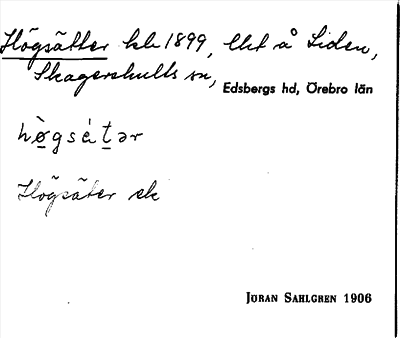 Högsätter kla 1899, lht å Liden,
Skagershults sn, Edsbergs hd, Örebro län
hò̱gsétər
Högsäter sk
Jöran Sahlgren 1906